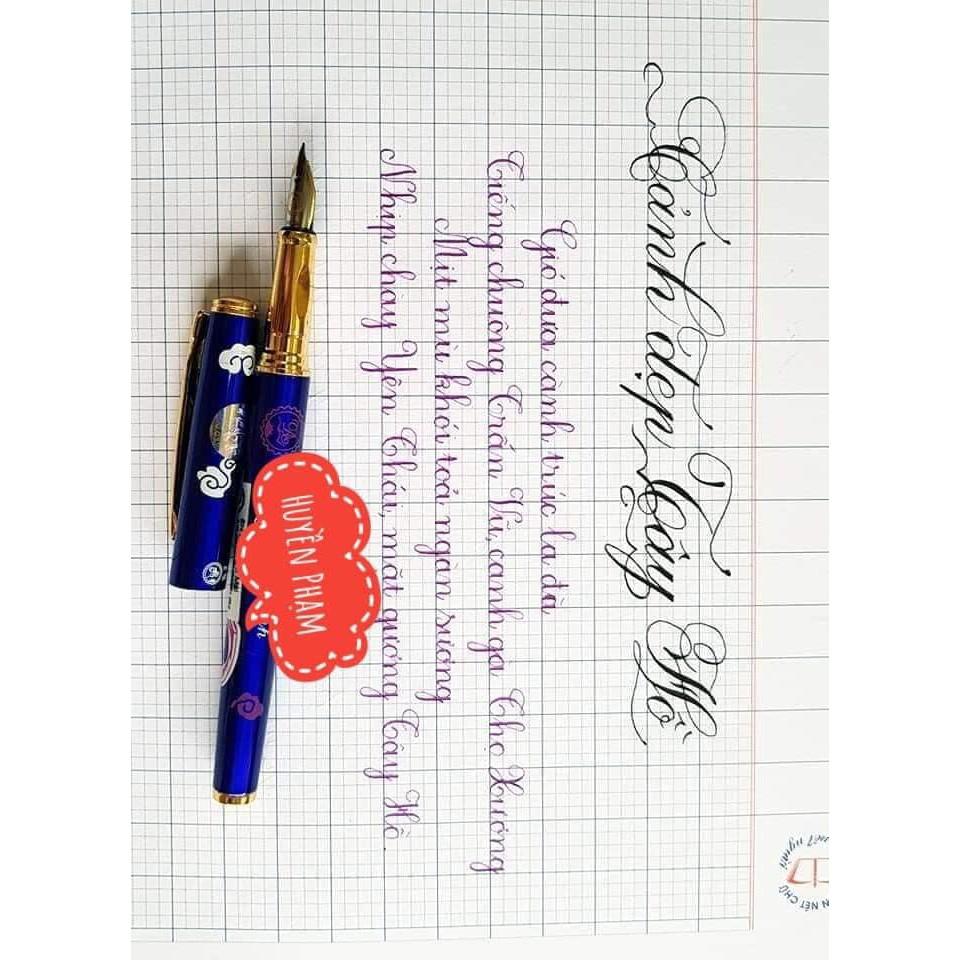 Cảnh đẹp Tây Hồ
Gió đưa cành trúc la đà
Tiếng chuông Trấn Vũ, canh gà Thọ Xương
Mịt mù khói toả ngàn sương
Nhịp chày Yên Thái, mặt gương Tây Hồ.
HUYỀN PHẠM
N NÉT CHỮ